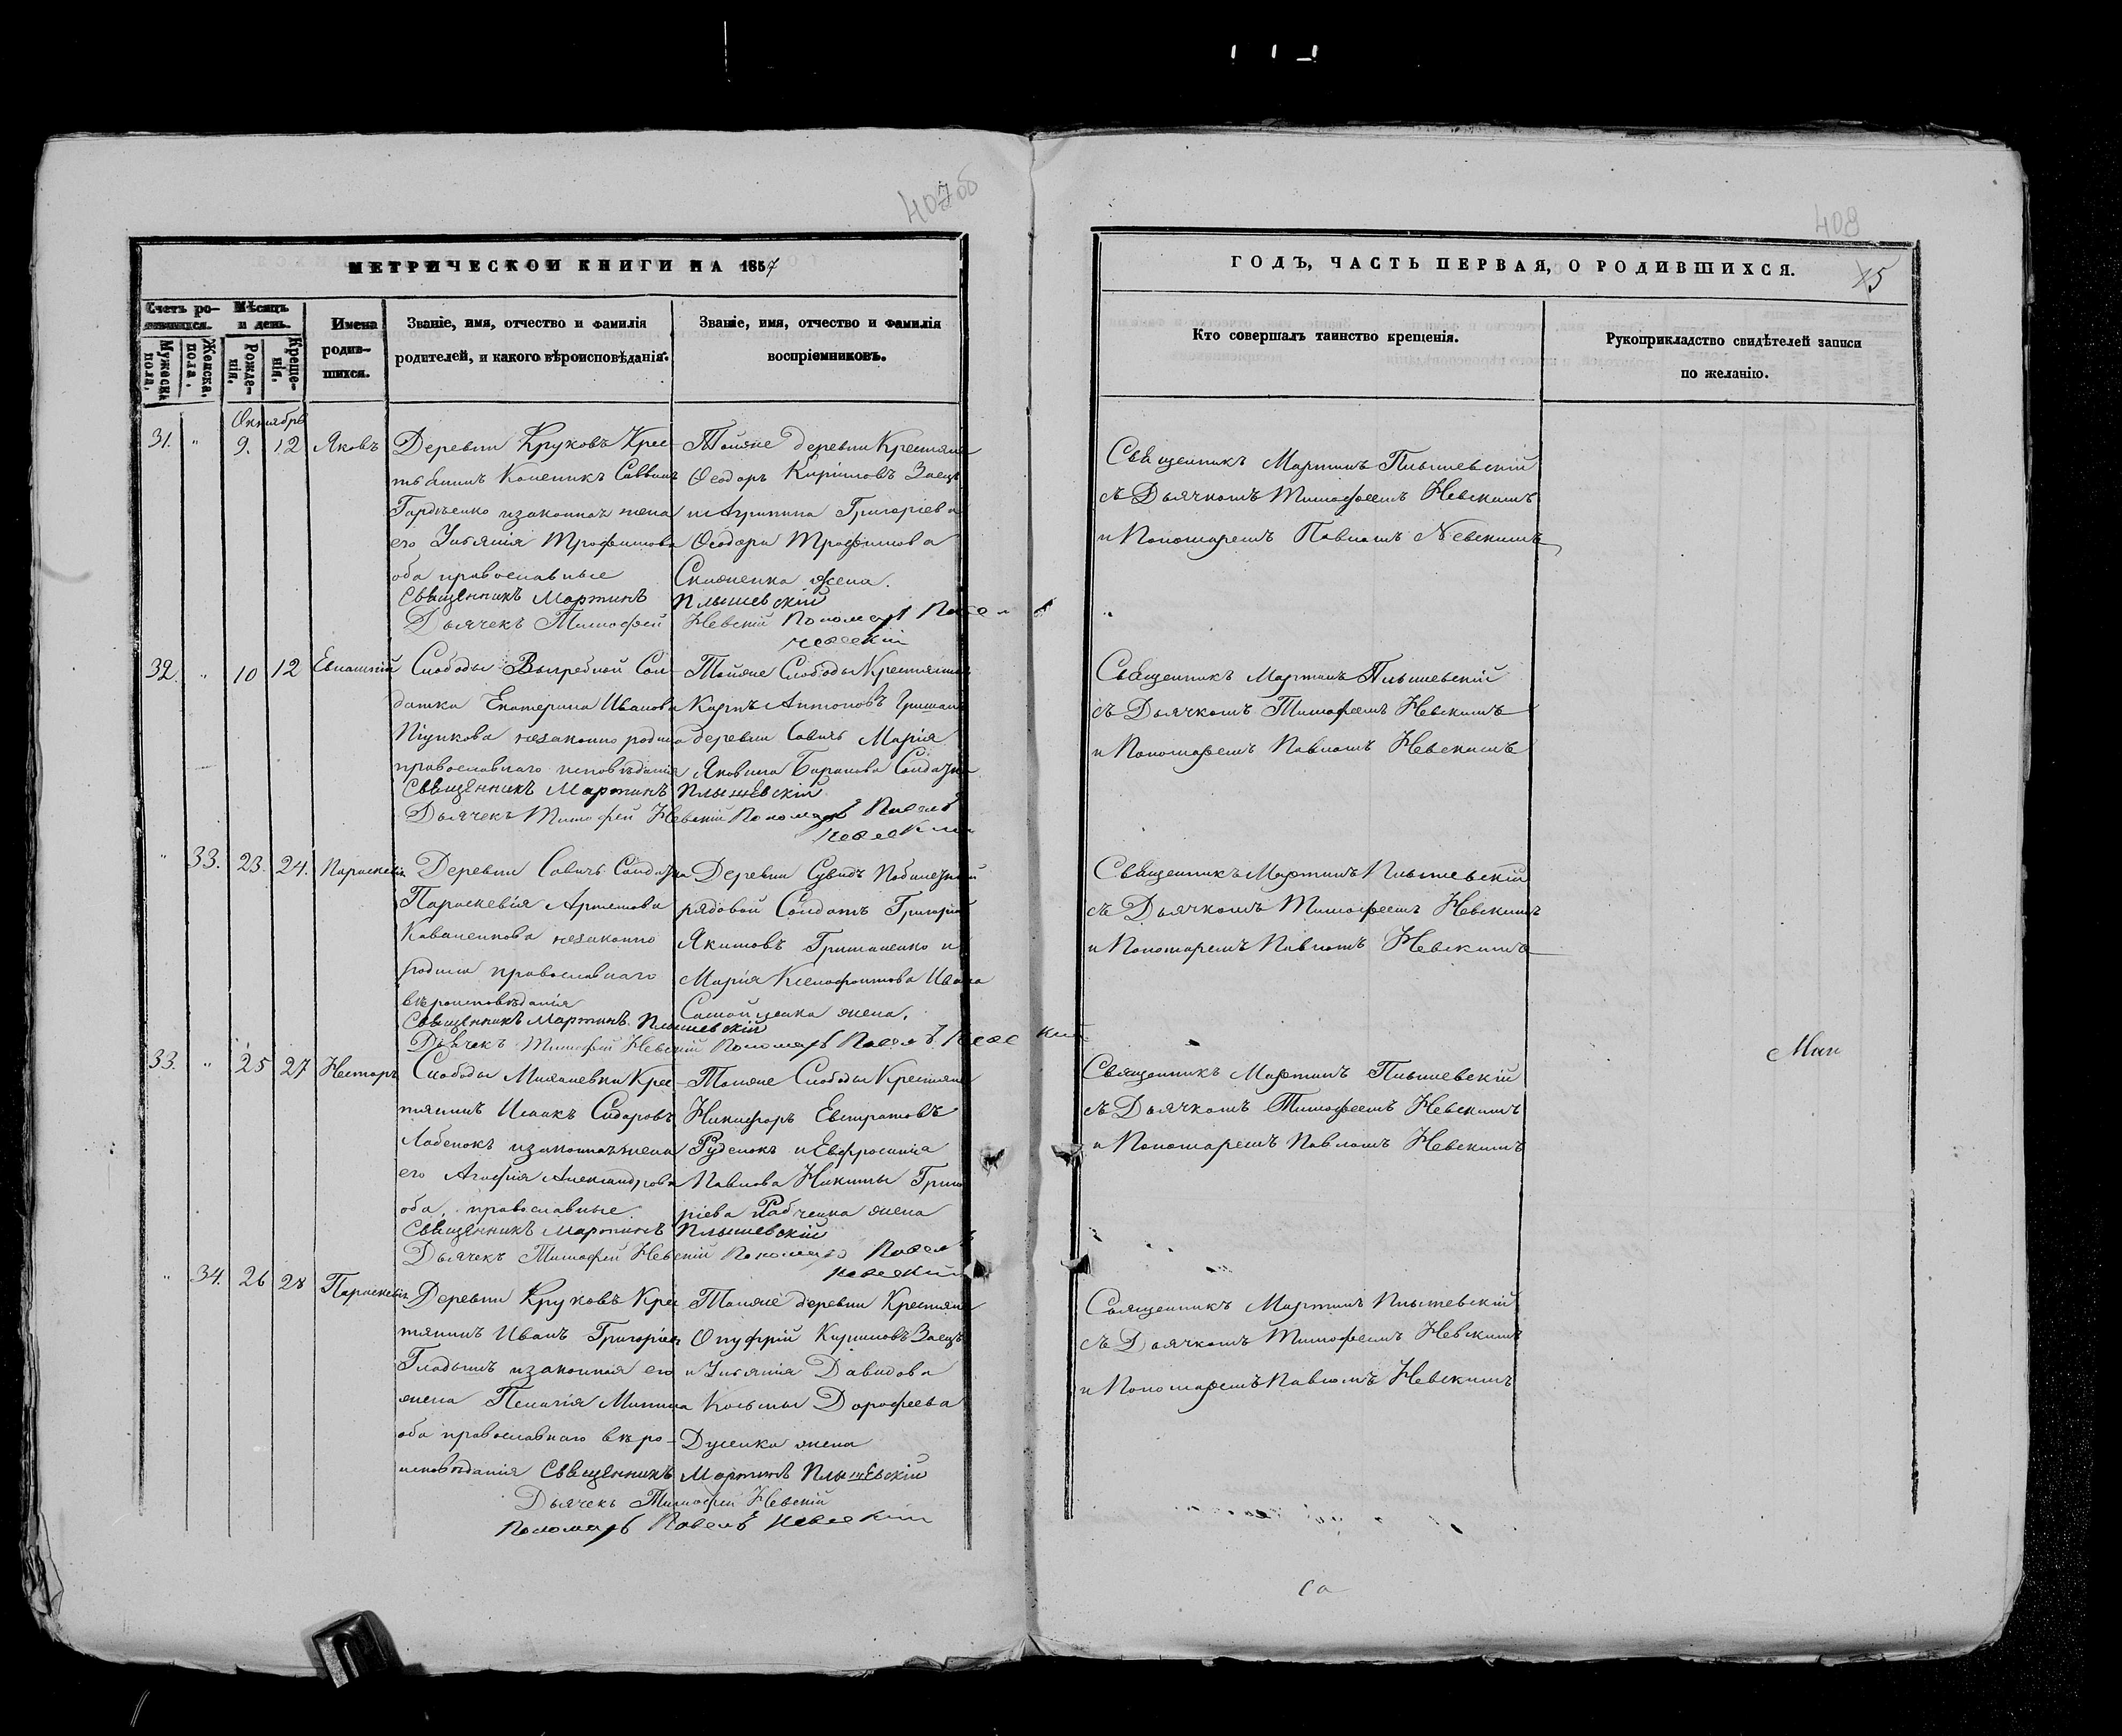 407об
МЕТРИЧЕСКОЙ КНИГИ НА 1857
Счетъ ро-
дившихся.
Мѣсяцъ
и день.
Имена
родив-
шихся.
Званіе, имя, отчество и фамилія
родителей, и какого вѣроисповѣданія.
Званіе, имя, отчество и фамилія
воспріемниковъ.
Мужеска
пола.
Женска.
пола.
Рожде-
нія.
Креще-
нія.
Октябрь
31. " 9. 12 Яковъ
Деревни Круковъ Крес-
тьянинъ Саввинъ
Гордѣенко изаконная жена
его Ульянія Трофимова
оба православные
Тойже деревни Крестьяне
Ѳеодоръ Кириловъ Заецъ
и Агрипина Григоріева
Ѳеодора Трофимова
жена.
Священникъ Мартинъ Плышевскій
Дьячекъ Тимофей Невскій Пономарь Павелъ
Невскій
32. " 10 12
Слободы Выгребной Сол-
датка Екатерина Иванова
незаконно родила
православнаго исповѣданія
Тойже Слободы Крестьянинъ
Карпъ Антоновъ
деревни Савичъ Марія
Яковлева Баранова Солдатка
Священникъ Мартинъ Плышевскій
Дьячекъ Тимофей Невскій Пономарь Павелъ
Невскій
" 33. 23. 24. Параскевія
Деревни Савичъ Солдатка
Параскевія Артемова
Коваленкова незаконно
родила православнаго
вѣроисповѣданія
Деревни Сувидъ
рядовой Солдатъ Григорій
Якимовъ Гришаненко и
Марія Ксенофонтова Ивана
жена.
Священникъ Мартинъ Плышевскій
Дьячекъ Тимофей Невскій Пономарь Павелъ Невскій
33. " 25 27 Несторъ
Слободы Крес-
тьянинъ Исаакъ Сидоровъ
Лобенокъ изаконная жена
его Агафія Александрова
оба православные
Тойже Слободы Крестьяне
Никифоръ Евстратовъ
Руденокъ и Евфросинія
Павлова Никиты Григо
ріева Рабченка жена
Священникъ Мартинъ Плышевскій
Дьячекъ Тимофей Невскій Пономарь Павелъ
Невскій
" 34. 26 28 Параскевія
Деревни Круковъ Крес
тьянинъ Иванъ Григоріевъ
Гладышъ изаконная его
жена Пелагія Минина
оба православнаго вѣро-
исповѣданія
Тойже деревни Крестьяне
Онуфрій Кириловъ Заецъ
и Ульянія Давидова
Косьмы Дорофеева
жена
Священникъ Мартинъ Плышевскій
Дьячекъ Тимофей Невскій
Пономарь Павелъ Невскій
408
ГОДЪ, ЧАСТЬ ПЕРВАЯ, О РОДИВШИХСЯ.
15
Кто совершалъ таинство крещенія.
Рукоприкладство свидѣтелей записи
по желанію.
Священникъ Мартинъ Плышевскій
съ Дьячкомъ Тимофеемъ Невскимъ
и Пономаремъ Павломъ Невскимъ
Священникъ Мартинъ Плышевскій
съ Дьячкомъ Тимофеемъ Невскимъ
и Пономаремъ Павломъ Невскимъ
Священникъ Мартинъ Плышевскій
съ Дьячкомъ Тимофеемъ Невскимъ
и Пономаремъ Павломъ Невскимъ
Священникъ Мартинъ Плышевскій
съ Дьячкомъ Тимофеемъ Невскимъ
и Пономаремъ Павломъ Невскимъ
Священникъ Мартинъ Плышевскій
съ Дьячкомъ Тимофеемъ Невскимъ
и Пономаремъ Павломъ Невскимъ